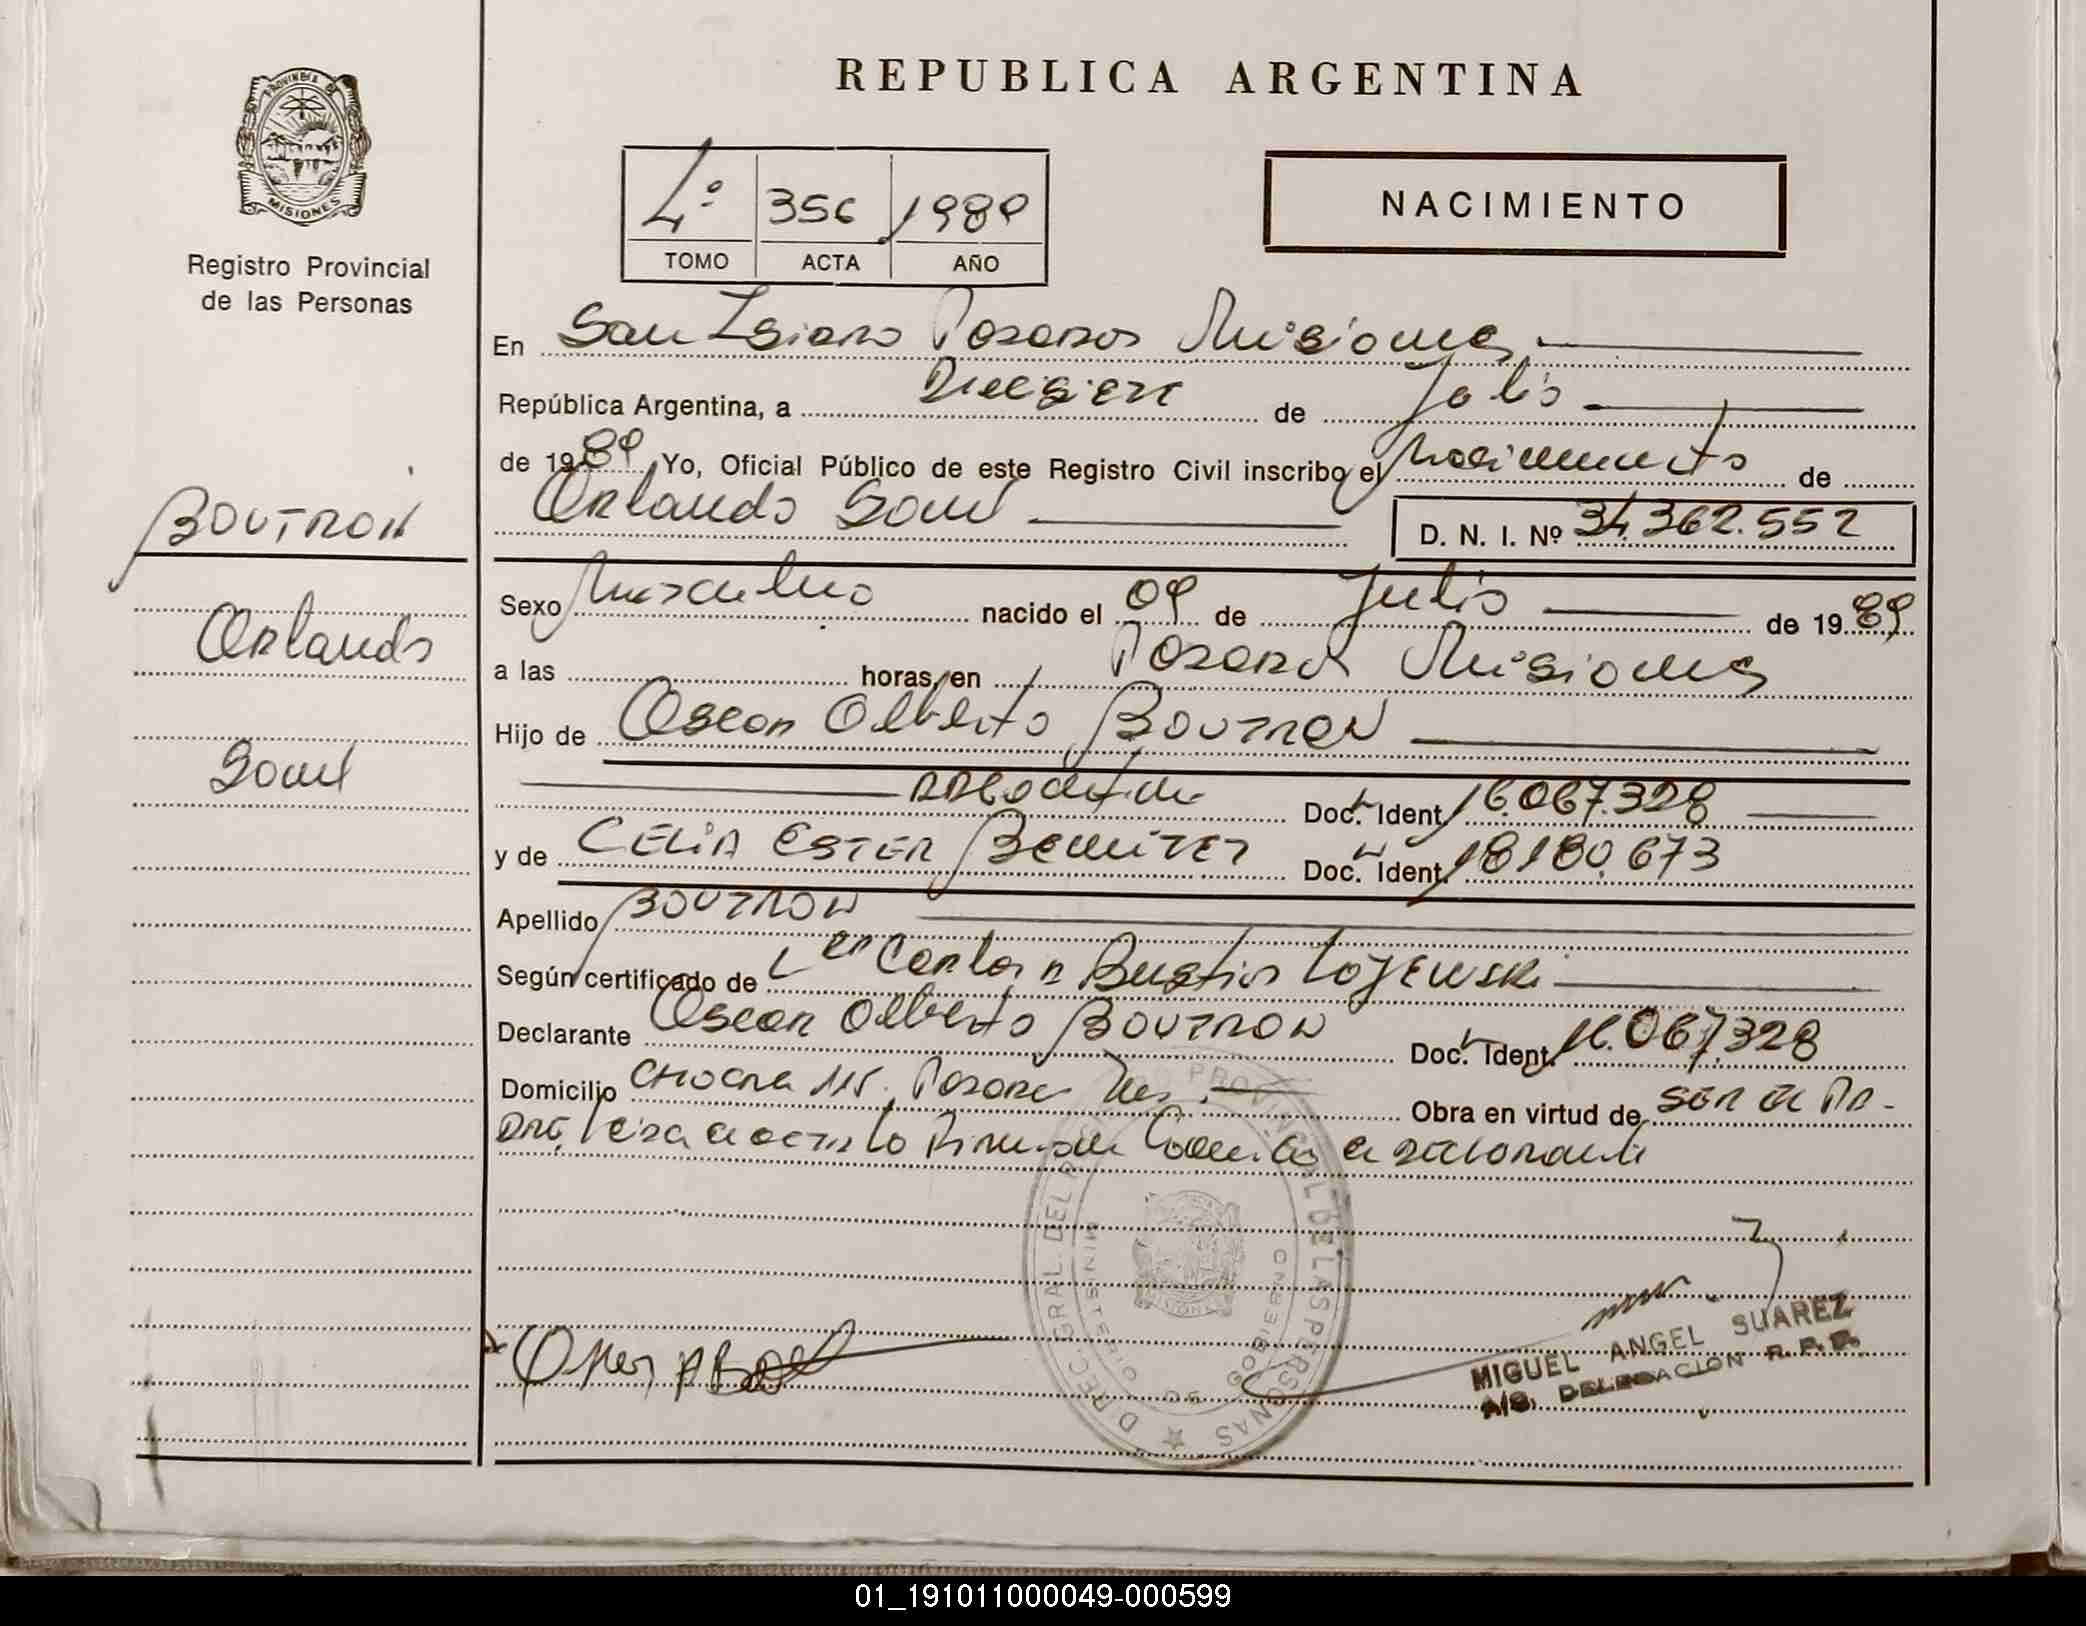 REPUBLICA ARGENTINA
PROVINCIA DE MISIONES
Registro Provincial
de las Personas
4º 356 1989
TOMO ACTA AÑO
NACIMIENTO
En San Isidro Posadas Misiones
República Argentina, a de Julio
de 1989 Yo, Oficial Público de este Registro Civil inscribo el Nacimiento de
Orlando
D. N. I. Nº 34.362.552
BOUTRON
Orlando
Sexo Masculino nacido el 09 de Julio de 1989
a las horas, en Posadas Misiones
Hijo de Oscar Alberto BOUTRON
Argentino Doc. Ident. 16.067.328
y de CELIA ESTER Benitez Doc. Ident. 18180.673
Apellido BOUTRON
Según certificado de Carlos Lojewski
Declarante Oscar Alberto BOUTRON Doc. Ident. 16.067.328
Domicilio 115. Posadas Mes. Obra en virtud de ser el Pa-
dre, Leida el acta la Firma el declarante
DIREC. GRAL. DEL REGISTRO PROVINCIAL DE LAS PERSONAS
MINISTERIO DE GOBIERNO
MIGUEL ANGEL SUAREZ
DELEGACION R. P. P.
01_191011000049-000599